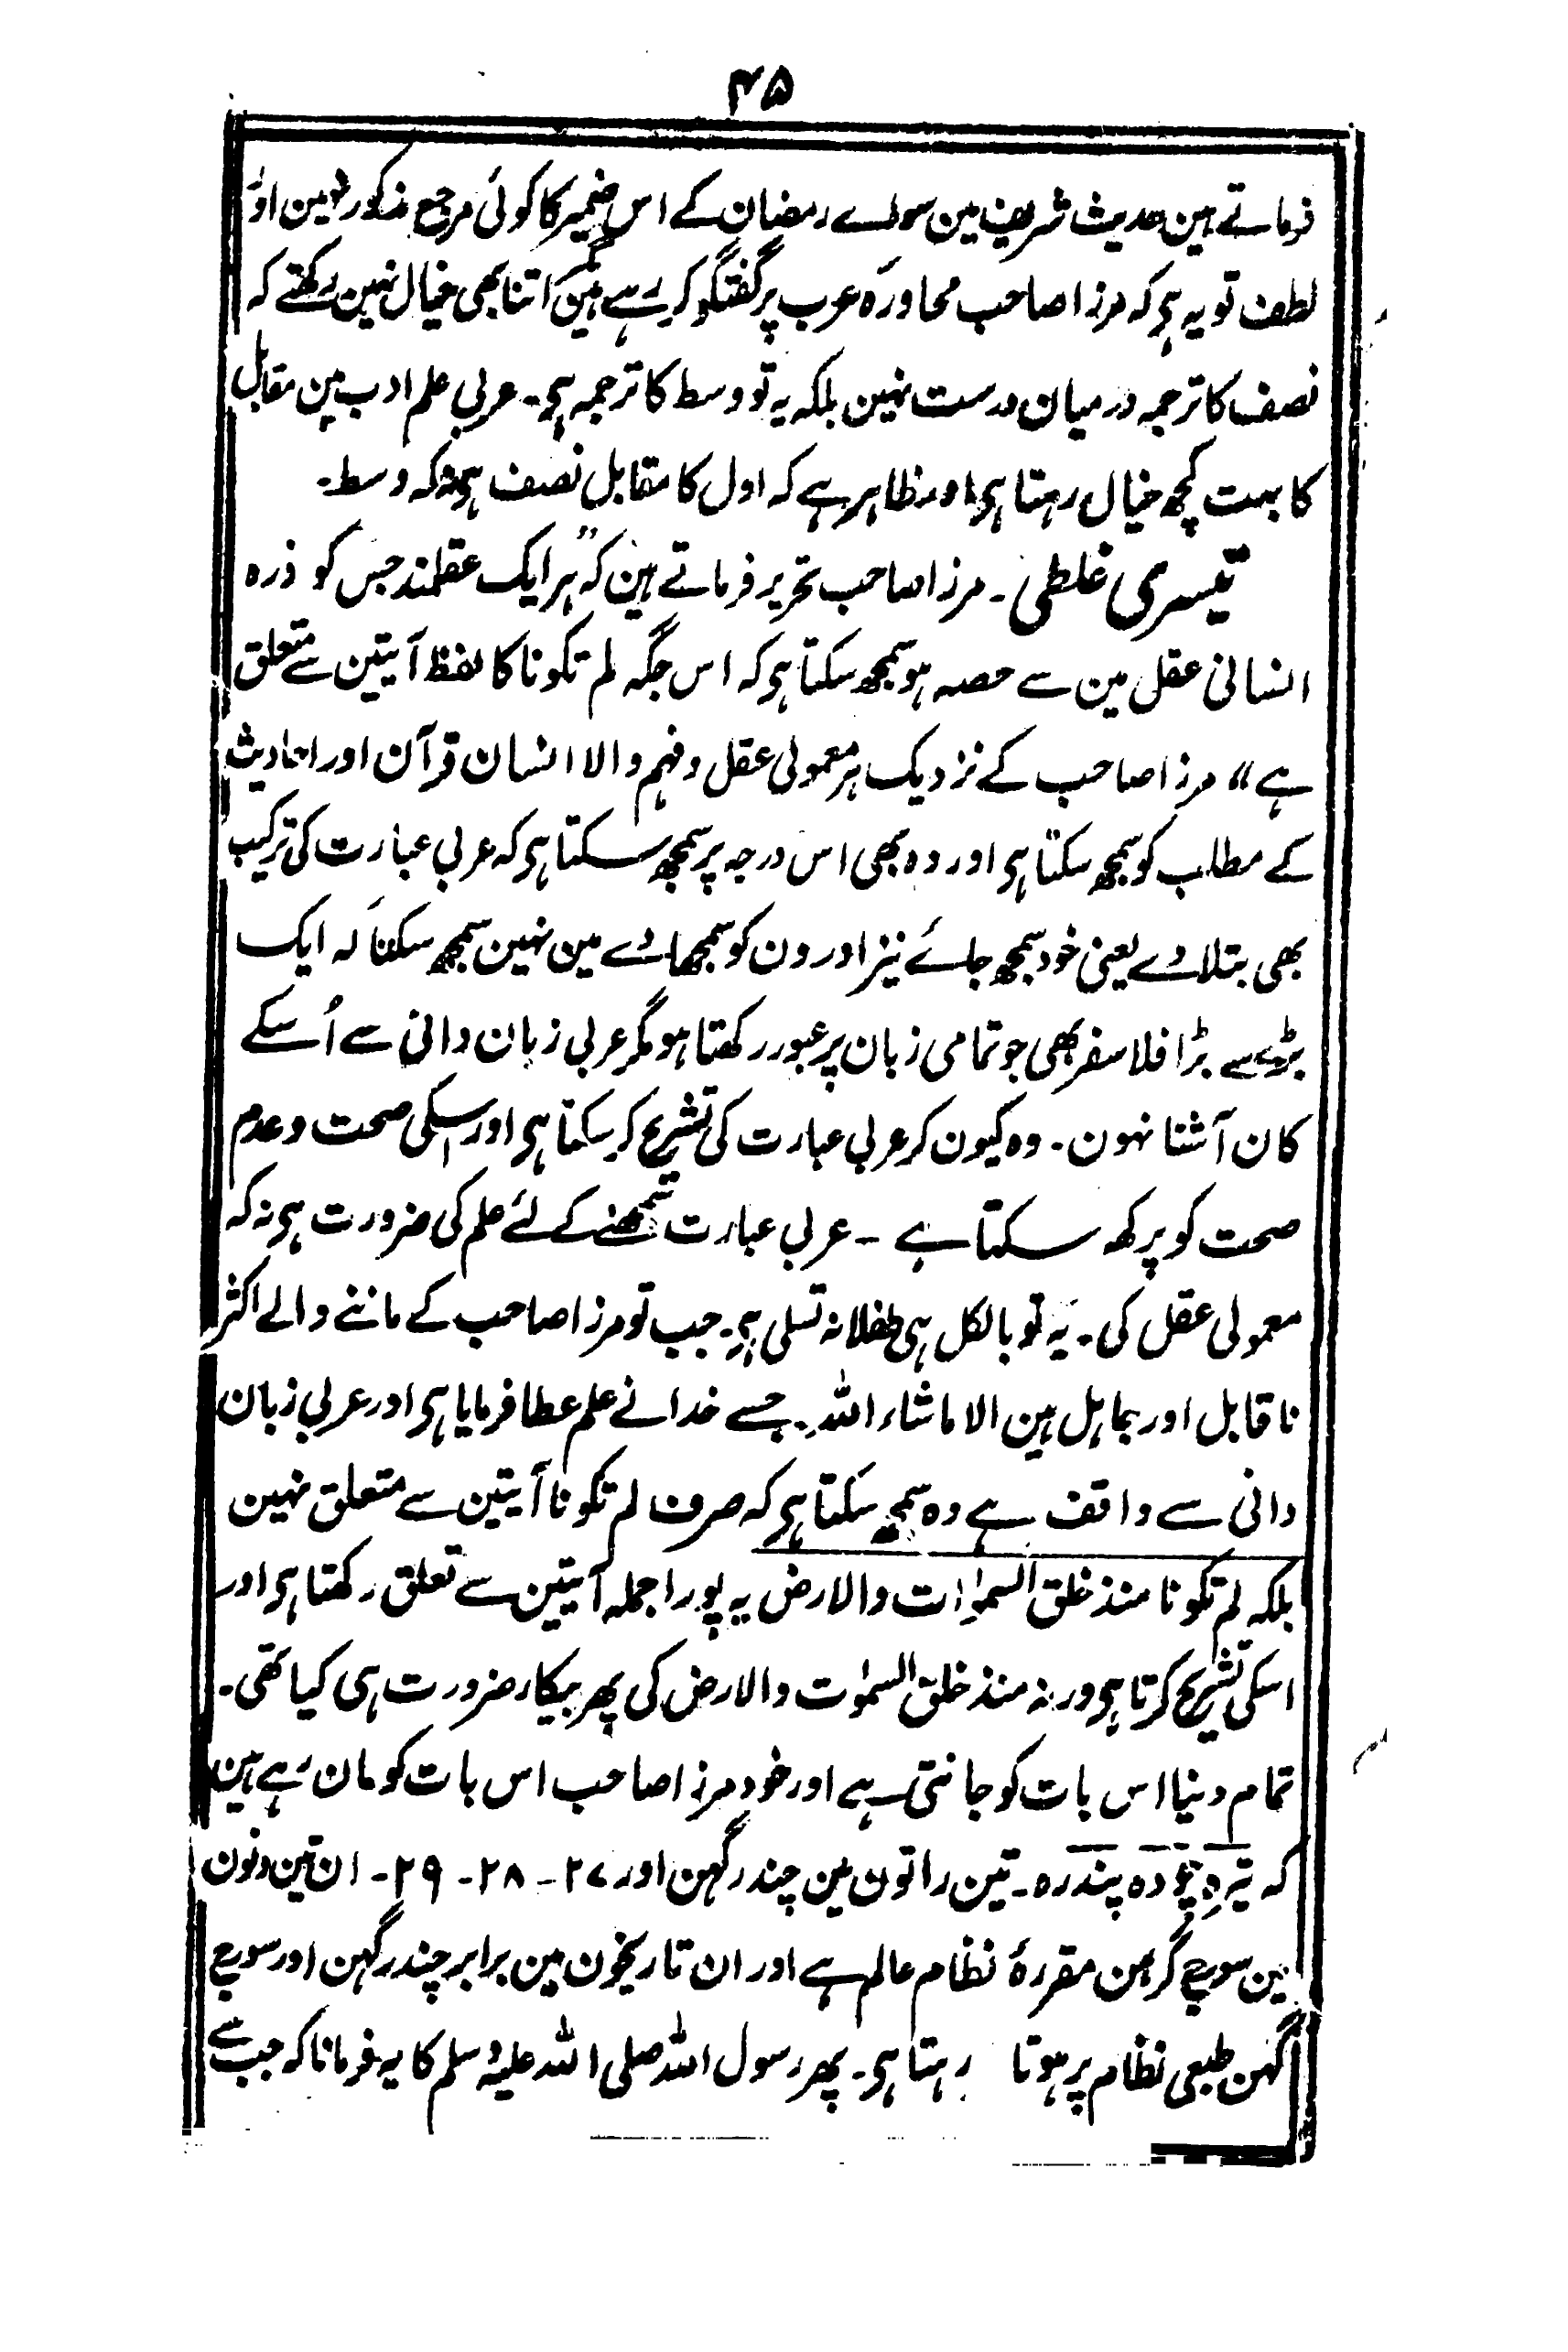 ۴۵
فرماتے ہین حدیث شریف مین سواے رمضان کے اس ضمیر کا کوئی مرجع مذکور نہین اور
لطف تو یہ ہی کہ مرزا صاحب محاورۂ عرب پر گفتگو کر رہے ہین مگر اتنا بھی خیال نہین رکھتے کہ
نصف کا ترجمہ درمیان درست نہین بلکہ یہ تو وسط کا ترجمہ ہی۔ عربی علم ادب مین مقابل
کا بہت کچھ خیال رہتا ہی اور ظاہر ہے کہ اول کا مقابل نصف ہی نہ کہ وسط۔
تیسری غلطی۔ مرزا صاحب تحریر فرماتے ہین کہ "ہر ایک عقلمند جس کو ذرہ
انسانی عقل مین سے حصہ ہو سمجھ سکتا ہی کہ اس جگہ لم تکونا کا لفظ آیتین سے متعلق
ہے" مرزا صاحب کے نزدیک ہر معمولی عقل و فہم والا انسان قرآن اور احادیث
کے مطلب کو سمجھ سکتا ہی اور وہ بھی اس درجہ پر سمجھ سکتا ہی کہ عربی عبارت کی ترکیب
بھی بتلا دے یعنی خود سمجھ جائے نیز اورون کو سمجھا دے مین نہین سمجھ سکتا کہ ایک
بڑے سے بڑا فلاسفر بھی جو تمامی زبان پر عبور رکھتا ہو مگر عربی زبان دانی سے اُسکے
کان آشنا نہون۔ وہ کیون کر عربی عبارت کی تشریح کر سکتا ہی اور اسکی صحت و عدم
صحت کو پرکھ سکتا ہے ۔ عربی عبارت سمجھنے کے لئے علم کی ضرورت ہی نہ کہ
معمولی عقل کی۔ یہ تو بالکل ہی طفلانہ تسلی ہی۔ جب تو مرزا صاحب کے ماننے والے اکثر
ناقابل اور جاہل ہین الا ماشاء اللہ۔ جسے خدا نے علم عطا فرمایا ہی اور عربی زبان
دانی سے واقف ہے وہ سمجھ سکتا ہی کہ صرف لم تکونا آیتین سے متعلق نہین
بلکہ لم تکونا منذ خلق السمٰوات والارض یہ پورا جملہ آیتین سے تعلق رکھتا ہی اور
اسکی تشریح کرتا ہی ورنہ منذ خلق السمٰوات والارض کی پھر بیکار ضرورت ہی کیا تھی۔
تمام دنیا اس بات کو جانتی ہے اور خود مرزا صاحب اس بات کو مان رہے ہین
کہ تیرہ چودہ پندرہ۔ تین راتون مین چندر گہن اور ۲۷۔ ۲۸۔ ۲۹۔ ان تین دنون
مین سورج گرہن مقررۂ نظام عالم ہے اور ان تاریخون مین برابر چندر گہن اور سورج
گہن طبعی نظام پر ہوتا رہتا ہی۔ پھر رسول اللہ صلی اللہ علیہ وسلم کا یہ فرمانا کہ جب سے